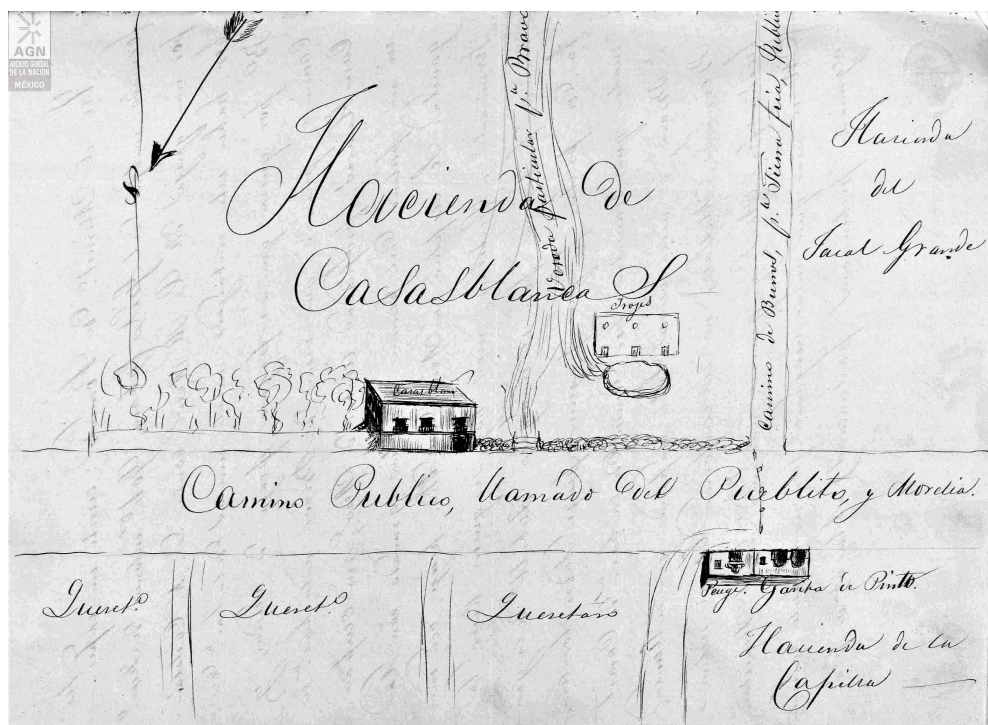 AGN
ARCHIVO GENERAL
DE LA NACIÓN
MÉXICO
Hacienda de
Casasblanca S
Vereda particular p.ª Bravo
Trojes
Camino de Bueno, p.ª Tierra fria, Publi
Hacienda
del
Jacal Grande
Casasblanca
Camino Publico, llamado del Pueblito, y Morelia.
Queret.º
Queret.º
Queretaro
Garita de Pinto.
Hacienda de la
Capilla